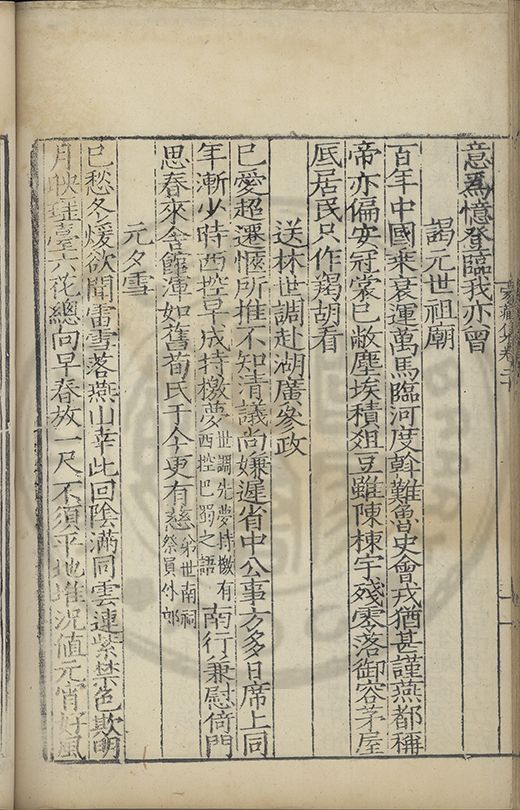 意爲憶登臨我亦曾
謁元世祖廟
百年中國乘衰運萬馬臨河度斡難魯史會戎猶甚謹燕都稱
帝亦偏安冠裳已敝塵埃積俎豆雖陳棟宇殘零落御容茅屋
底居民只作羯胡看
送林世調赴湖廣參政
已愛超遷愜所推不知清議尚嫌遲省中公事方多日席上同
年漸少時西控早成持檄夢世調先夢持檄有西控巴蜀之語南行兼慰倚門
思春來舍館渾如舊荀氏于今更有慈弟世南祠祭員外郎
元夕雪
已愁冬煖欲聞雷雪落燕山幸此回陰滿同雲連紫禁色欺明
月映瑤臺六花總向早春放一尺不須平地堆況值元宵好風